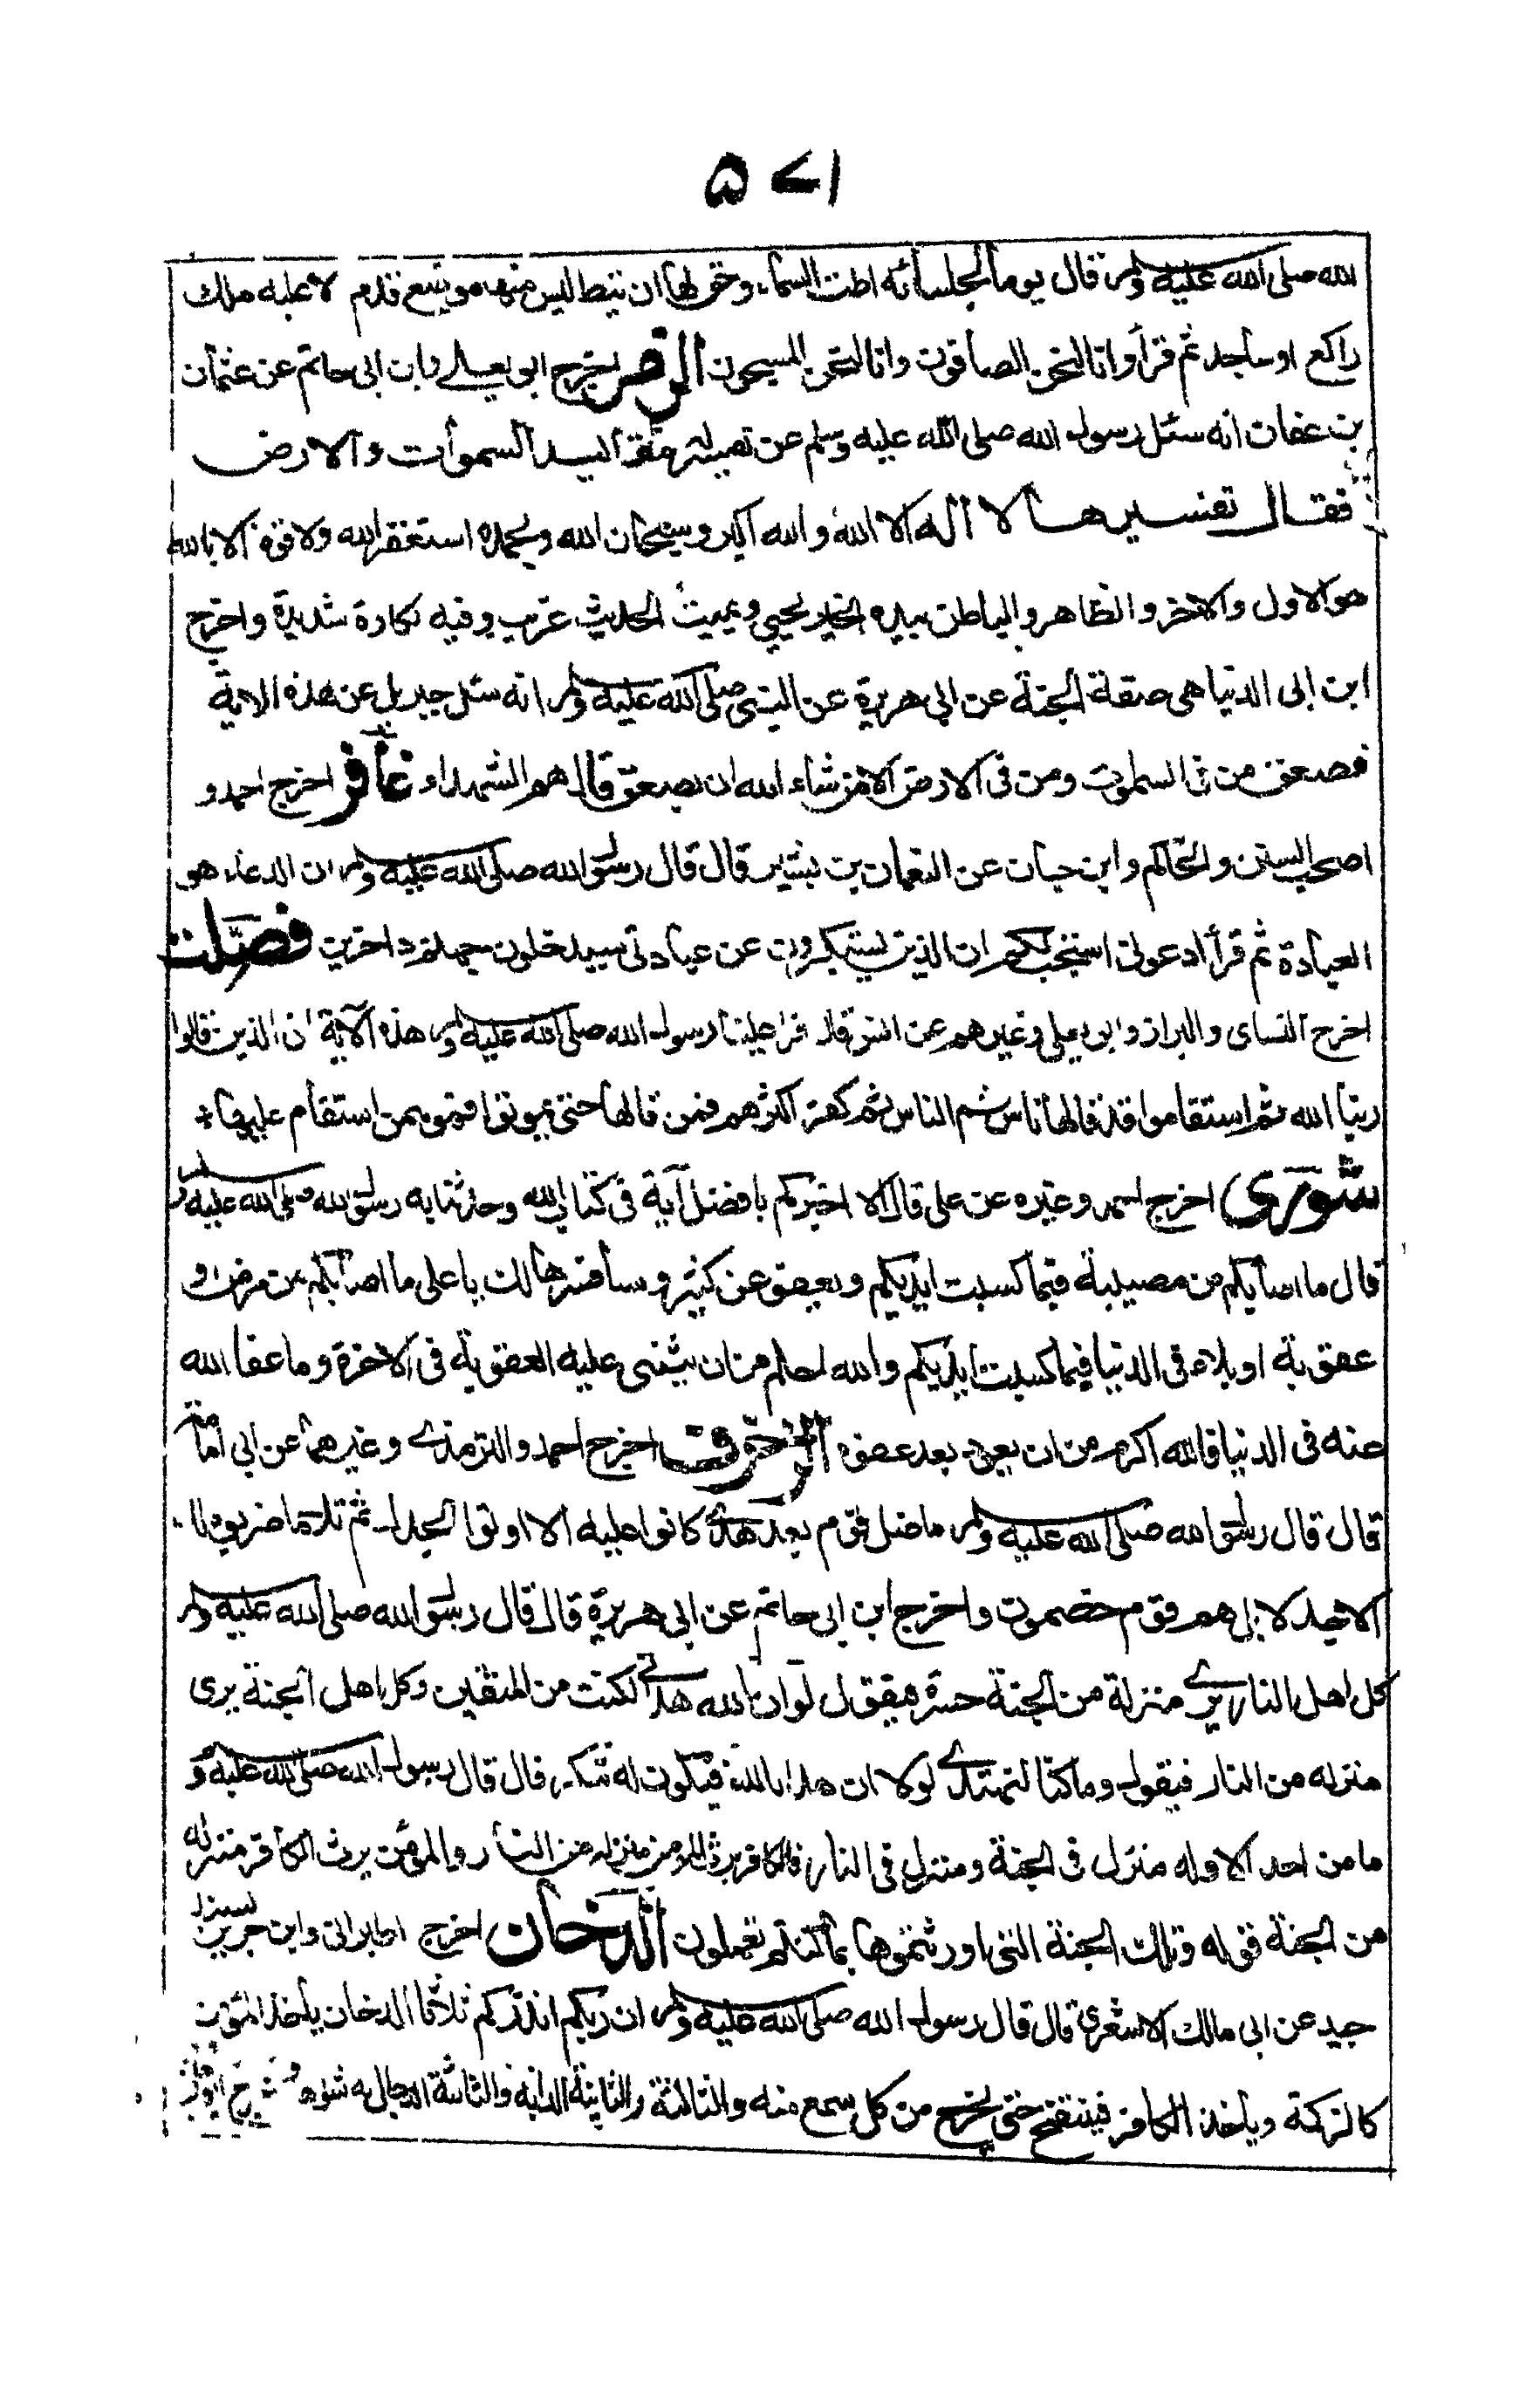 ۵۷۱
الله صلى الله عليه وسلم قال يوما لجلسائه اطت السماء وحق لها ان تئط ليس منها موضع قدم الا عليه ملك
راكع او ساجد ثم قرأ وانا لنحن الصافون وانا لنحن المسبحون الزمر اخرج ابو يعلے وابن ابى حاتم عن عثمان
بن عفان انه سئل رسول الله صلى الله عليه وسلم عن تفسير له مقاليد السموات والارض
فقال تفسيرها لا اله الا الله والله اكبر وسبحان الله وبحمده استغفر الله ولا قوة الا بالله
هو الاول والاخر والظاهر والباطن بيده الخير يحيي ويميت الحديث غريب وفيه نكارة شديدة واخرج
ابن ابى الدنيا فى صفة الجنة عن ابي هريرة عن النبى صلى الله عليه وسلم انه سئل جبريل عن هذه الاية
فصعق من فى السموت ومن فى الارض الا من شاء الله ان يصعق قال هم الشهداء غافر اخرج احمد و
اصحاب السنن والحاكم وابن حبان عن النعمان بن بشير قال قال رسول الله صلى الله عليه وسلم ان الدعاء هو
العبادة ثم قرأ ادعونى استجب لكم ان الذين يستكبرون عن عبادتى سيدخلون جهنم داخرين فصلت
اخرج النساى والبزار وابو يعلى وغيرهم عن انس قال قرا علينا رسول الله صلى الله عليه وسلم هذه الآية ان الذين قالوا
ربنا الله ثم استقاموا قد قالها ناس من الناس ثم كفر اكثرهم فمن قالها حتى يموت فهو ممن استقام عليها
شورى اخرج احمد وغيره عن على قال الا اخبركم بافضل آية فى كتاب الله وحدثنا به رسول الله صلى الله عليه وسلم
قال ما اصابكم من مصيبة فبما كسبت ايديكم ويعفو عن كثير وسافسرها لك يا على ما اصابكم من مرض او
عقوبة او بلاء فى الدنيا فبما كسبت ايديكم والله احلم من ان يثنى عليه العقوبة فى الاخرة وما عفا الله
عنه فى الدنيا فالله اكرم من ان يعود بعد عفوه الزخرف اخرج احمد والترمذے وغيرهما عن ابى امامة
قال قال رسول الله صلى الله عليه وسلم ما ضل قوم بعد هدى كانوا عليه الا اوتوا الجدل ثم تلا ما ضربوه لك
الا جدلا بل هم قوم خصمون واخرج ابن ابى حاتم عن ابى هريرة قال قال رسول الله صلى الله عليه وسلم
كل اهل النار يرے منزلة من الجنة حسرة فيقول لو ان الله هدانى لكنت من المتقين وكل اهل الجنة يرى
منزله من النار فيقول وما كنا لنهتدے لولا ان هدانا الله فيكون له شكر قال قال رسول الله صلى الله عليه و
ما من احد الا وله منزل فى الجنة ومنزل فى النار فالكافر يرث المومن منزله من النار والمؤمن يرث الكافر منزله
من الجنة قوله وتلك الجنة التى اورثتموها بما كنتم تعملون الدخان اخرج الطبرانى وابن جرير بسند
جيد عن ابى مالك الاشعرى قال قال رسول الله صلى الله عليه وسلم ان ربكم انذركم ثلاثا الدخان ياخذ المؤمن
كالزكمة وياخذ الكافر فينتفخ حتى يخرج من كل سمع منه والثانية الدابة والثالثة الدجال له شواهد